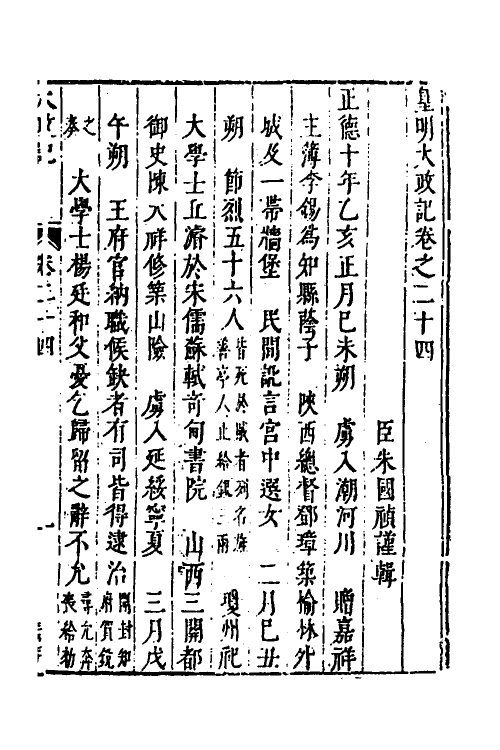 皇明大政記卷之二十四
臣朱國禎謹輯
正德十年乙亥正月巳未朔　虜入潮河川　贈嘉祥
主薄李錫爲知縣蔭子　陜西總督鄧璋築榆林外
城及一帶牆堡　民間訛言宮中選女　二月巳丑
朔　節烈五十六人皆死吳賊者列名旌善亭人止給銀三兩　瓊州祀
大學士丘濬於宋儒蘇軾奇甸書院　山西三關都
御史陳天祥修築山險　虜入延綏寧夏　三月戊
午朔　王府官納職候缺者有司皆得逮治開封知府賀銳
奏之　大學士楊廷和父憂乞歸留之辭不允尋允奔喪給勅
大政記
卷二十四
一